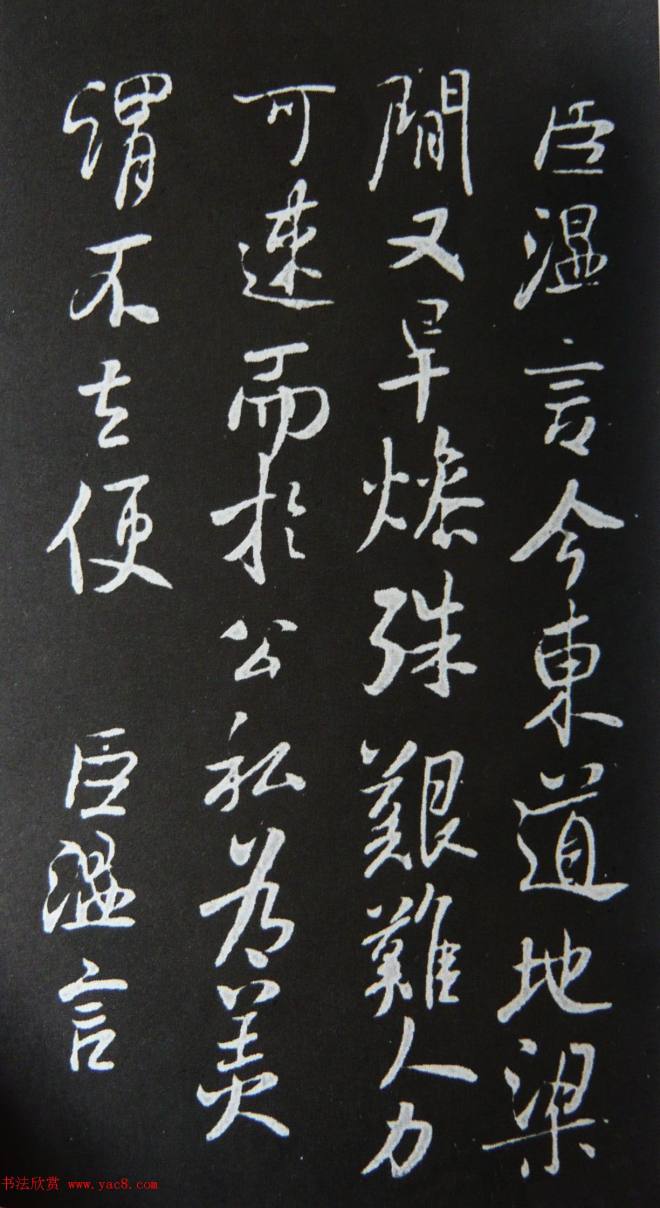 臣温言今東道地梁
間又旱燥殊艱難人力
可速而於公私為美
謂不去便 臣温言
书法欣赏 www.yac8.com